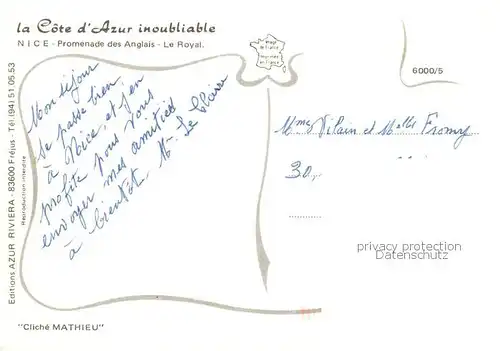 la Côte d'Azur inoubliable
NICE - Promenade des Anglais - Le Royal.
Image de France
Imprimée en France
6000/5
Mon séjour
se passe bien
à Nice, et j'en
profite pour vous
envoyer mes amitiés
à bientôt M. Le
Mme Vilain et Melle Fromy
30
privacy protection
Datenschutz
Editions AZUR RIVIERA - 83600 Fréjus - Tél. (94) 51.05.53
Reproduction interdite
"Cliché MATHIEU"